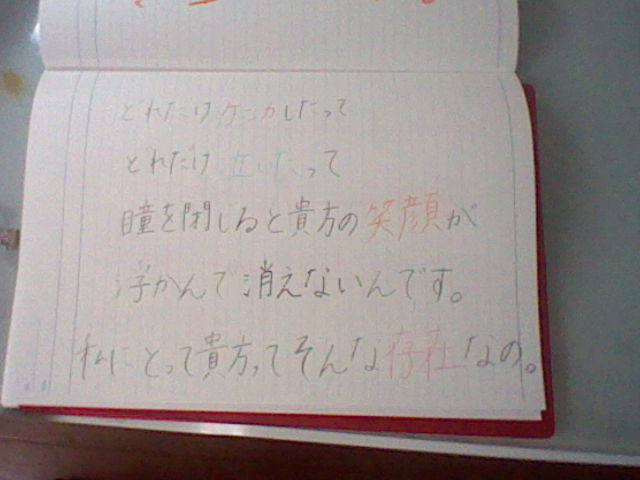 どれだけケンカしたって
どれだけ泣いたって
瞳を閉じると貴方の笑顔が
浮かんで消えないんです。
私にとって貴方ってそんな存在なの。